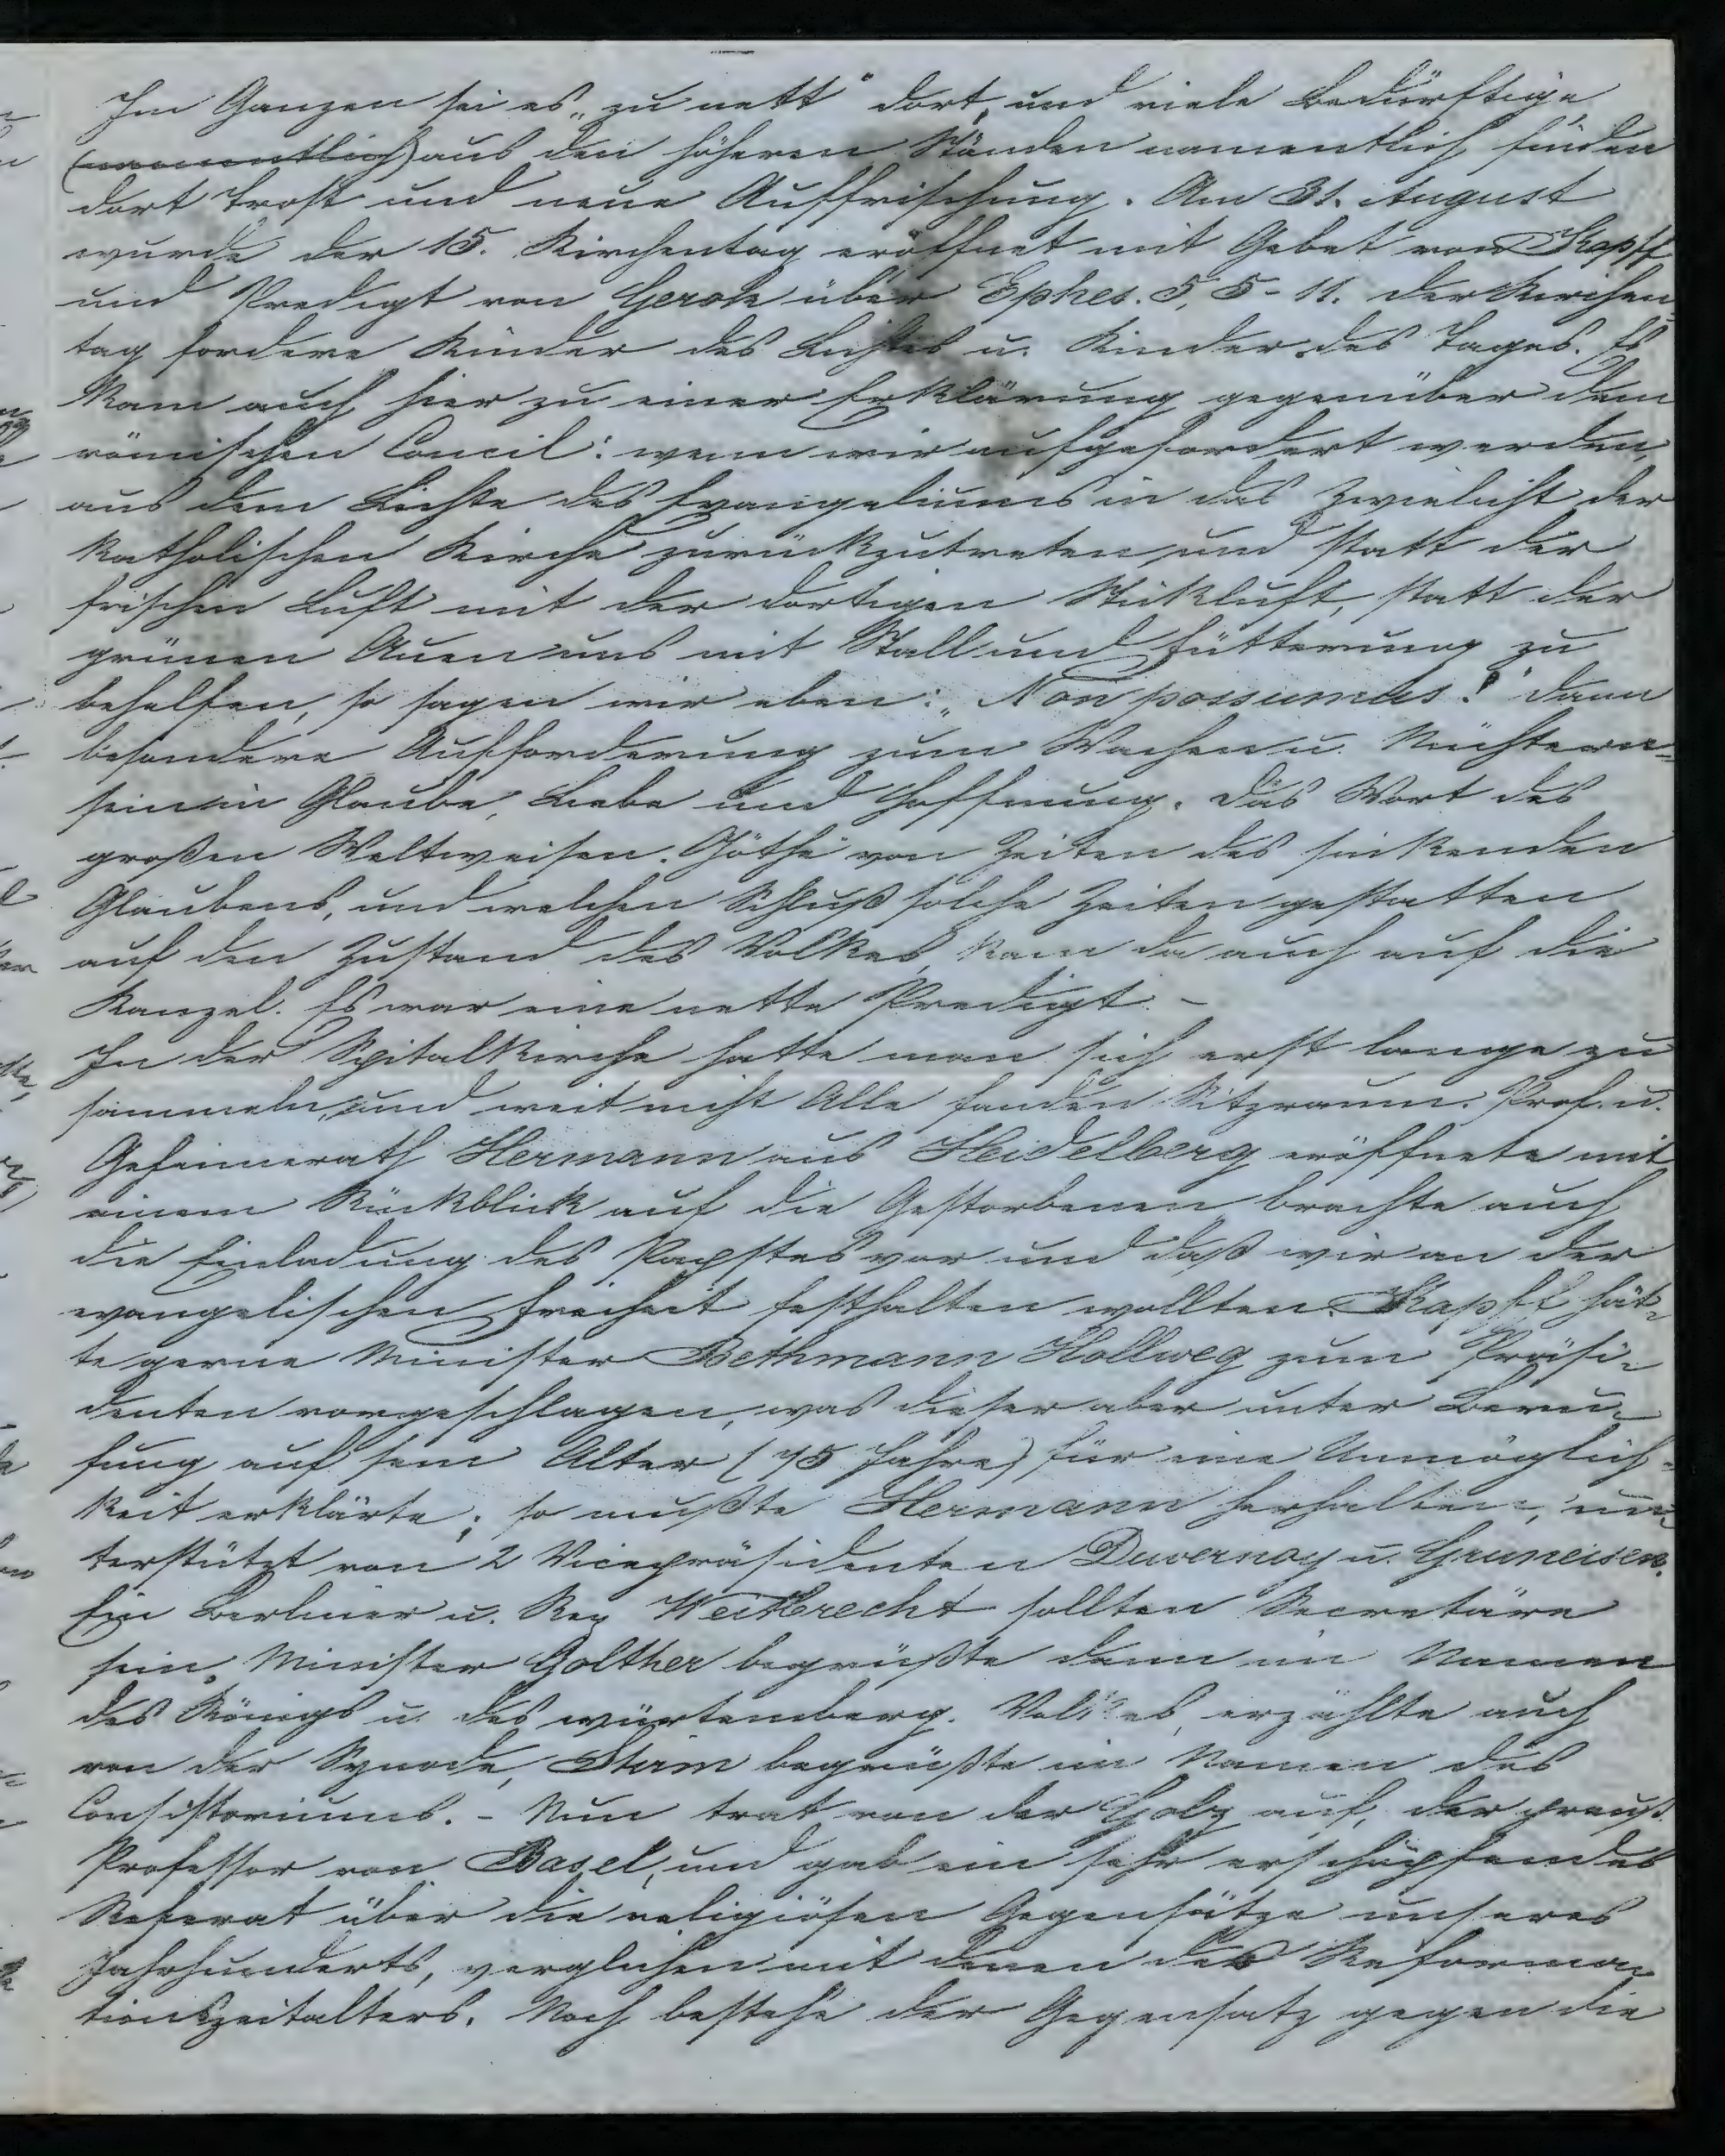 Im Ganzen sei es „zu nett" dort, und viele Bedürftige
(namentlich) aus den höheren Ständen namentlich finden
dort Trost und neue Auffrischung. Am 31. August
wurde der 15. Kirchentag eröffnet mit Gebet von Kapff
und Predigt von Gerok über Ephes. 5, 5-11. der Kirchen-
tag fordere Kinder des Lichtes u. Kinder des Tages. Es
kam auch hier zu einer Erklärung gegenüber dem
römischen Concil: wenn wir aufgefordert werden,
aus dem Lichte des Evangeliums in das Zwielicht der
katholischen Kirche zurückzutreten, und statt der
frischen Luft mit der dortigen Stickluft, statt der
grünen Auen uns mit Stall und Fütterung zu
behelfen, so sagen wir eben: „Non possumus!" dann
besondere Aufforderung zum Wachen u. Nüchtern-
sein in Glaube, Liebe und Hoffnung. Das Wort des
großen Weltweisen Göthe von Zeiten des sinkenden
Glaubens, und welchen Schluß solche Zeiten gestatten
auf den Zustand des Volkes, kam da auch auf die
Kanzel. Es war eine nette Predigt. -
In der Spitalkirche hatte man sich erst lange zu
sammeln, und weit nicht Alle fanden Sitzraum. Prof. u.
Geheimerath Hermann aus Heidelberg eröffnete mit
einem Rückblick auf die Gestorbenen, brachte auch
die Einladung des Papstes vor und daß wir an der
evangelischen Freiheit festhalten wollten. Kapff hät-
te gerne Minister Bethmann Hollweg zum Präsi-
denten vorgeschlagen, was dieser aber unter Beru-
fung auf sein Alter (75 Jahre) für eine Unmöglich-
keit erklärte; so mußte Hermann herhalten, un-
terstützt von 2 Vicepräsidenten Duvernoy u. Gruneisen.
Ein Berliner u. Rep Weitbrecht sollten Secretäre
sein. Minister Golther begrüßte dann im Namen
des Königs u. des würtemberg. Volkes, erzählte auch
von der Synode, Stirm begrüßte im Namen des
Consistoriums. - Nun trat von der Golz auf, der preuß.
Professor von Basel, und gab ein sehr erschöpfendes
Referat über die religiösen Gegensätze unseres
Jahrhunderts, verglichen mit denen des Reforma-
tionszeitalters. Noch bestehe der Gegensatz gegen die